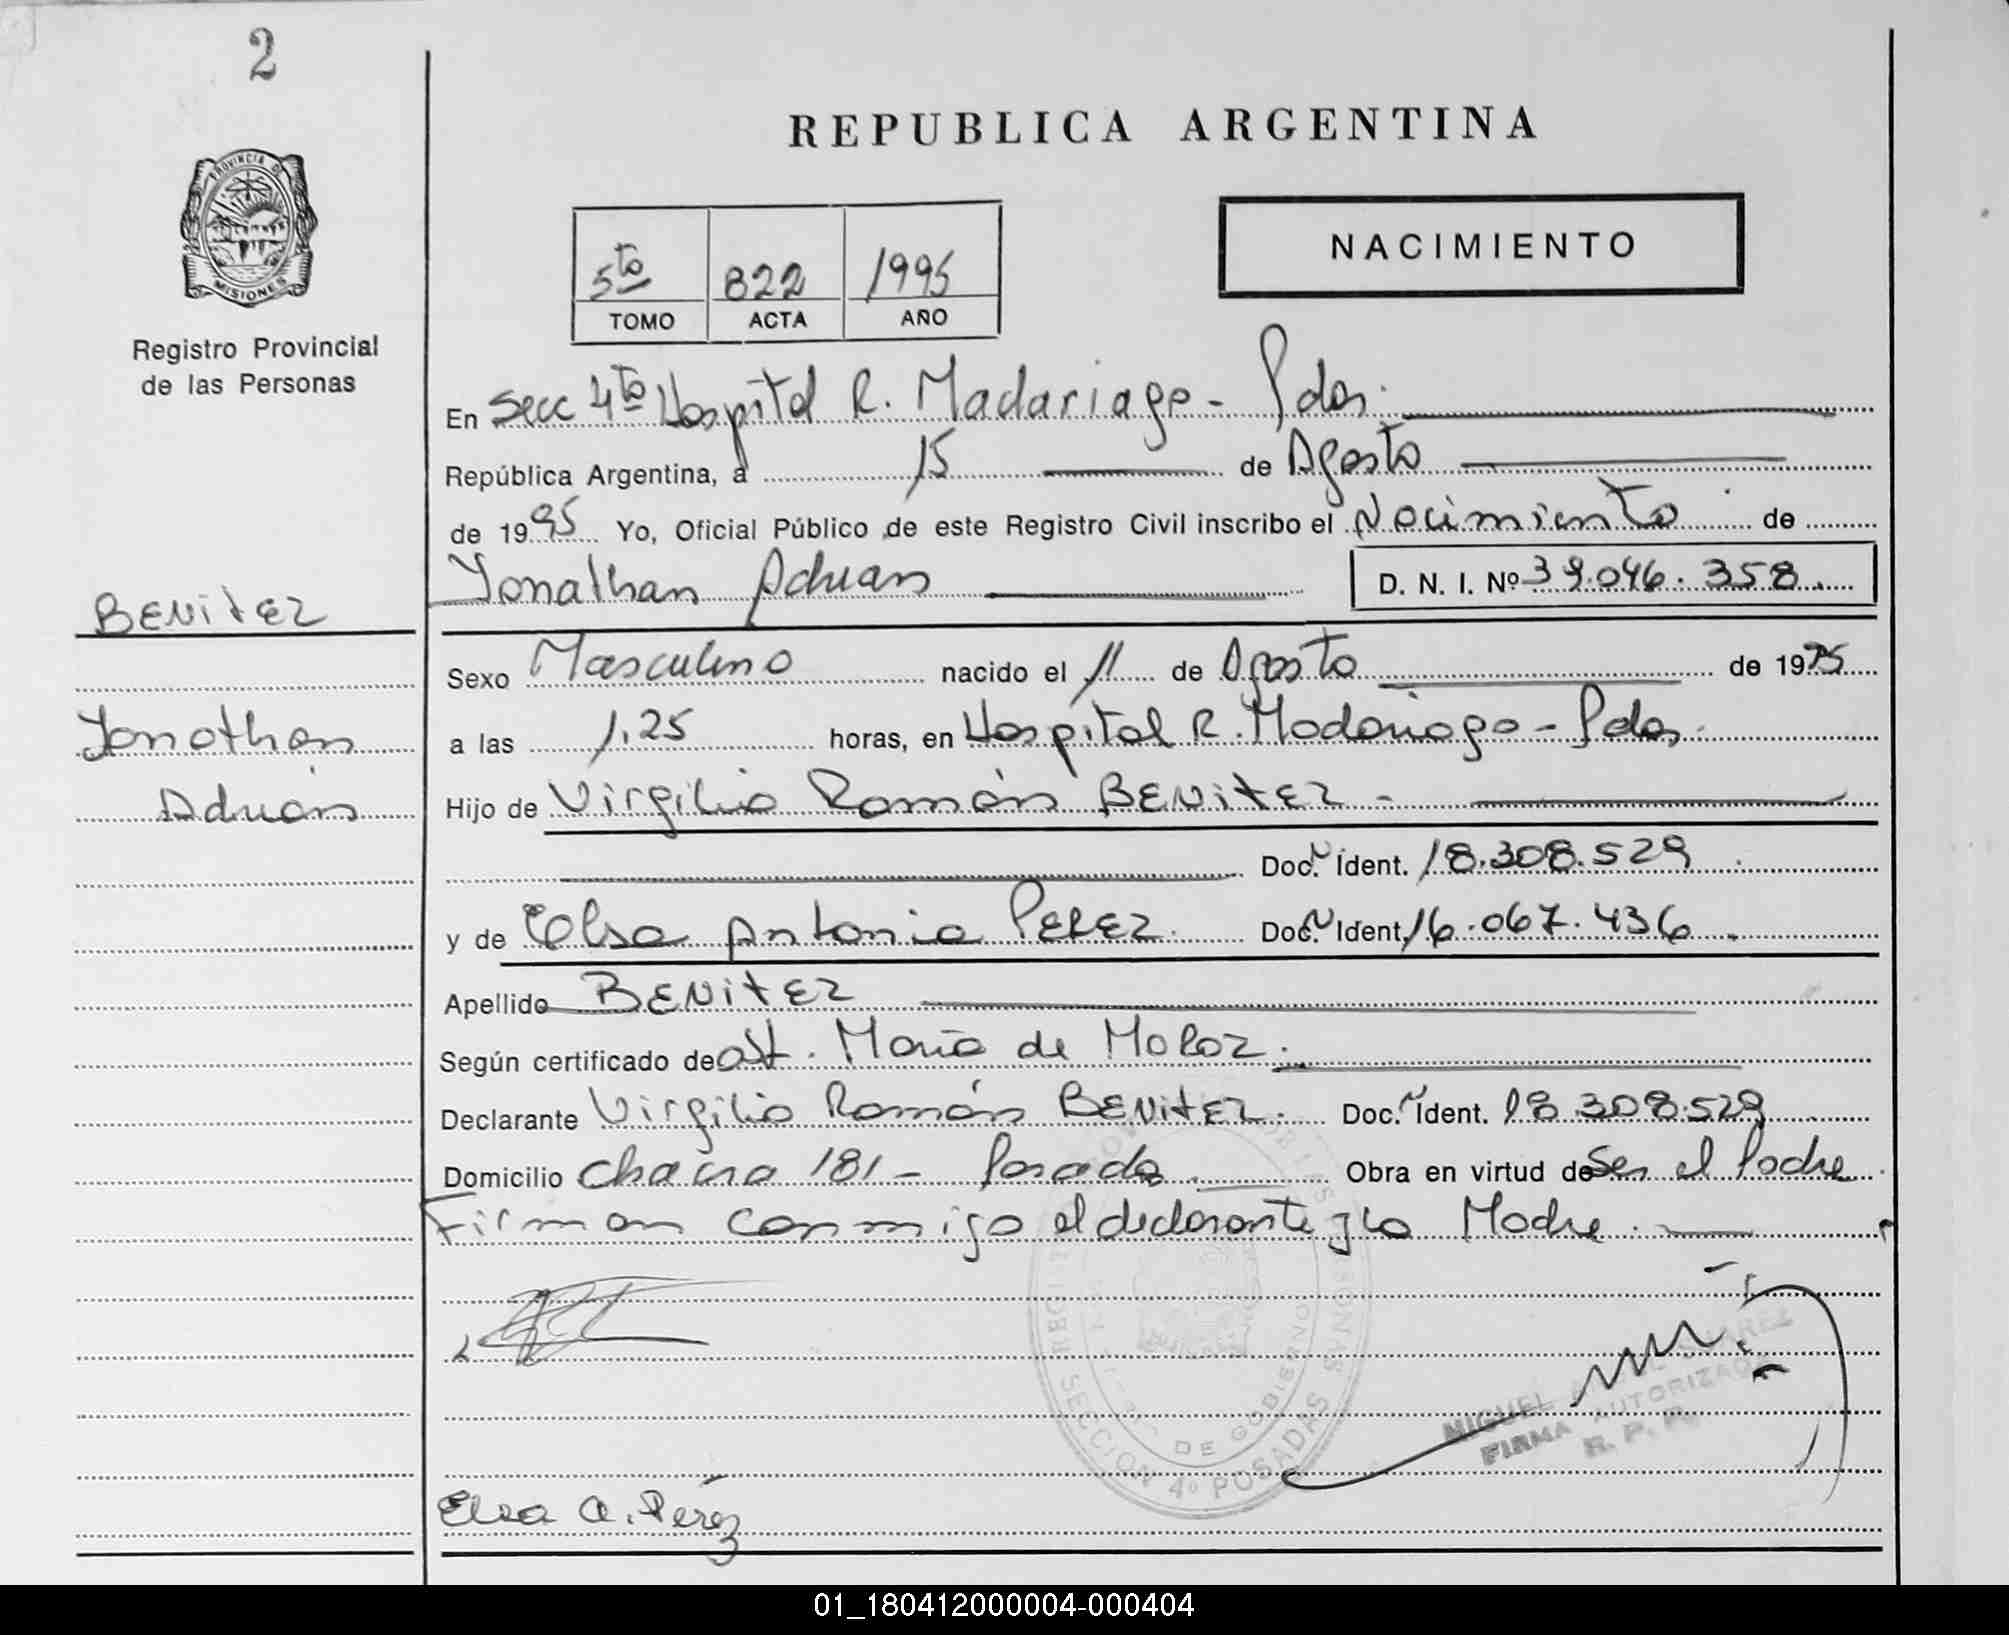 2
REPUBLICA ARGENTINA
PROVINCIA DE
MISIONES
Registro Provincial
de las Personas
NACIMIENTO
5to 822 1995
TOMO ACTA AÑO
En Secc 4to Hospital R. Madariaga - Pdas.
República Argentina, a 15 de Agosto
de 1995 Yo, Oficial Público de este Registro Civil inscribo el Nacimiento de
Yonathan Adrian D. N. I. Nº 39.046.358
BENITEZ
Yonathan
Adrián
Sexo Masculino nacido el 11 de Agosto de 1995
a las 1,25 horas, en Hospital R. Madariaga - Pdas.
Hijo de Virgilio Ramón BENITEZ -
Doc. Ident. 18.308.529
y de Elsa Antonia PEREZ. Doc. Ident. 16.067.436
Apellido BENITEZ
Según certificado de obst. María de
Declarante Virgilio Ramón BENITEZ. Doc. Ident. 18.308.529
Domicilio Chacra 181 - Posadas. Obra en virtud de Ser el Padre
Firman conmigo el declarante y la Madre.
MIGUEL SUAREZ
FIRMA AUTORIZADA
R. P. P.
DE GOBIERNO
SECCION 4º POSADAS
Elsa A. Pérez
01_180412000004-000404